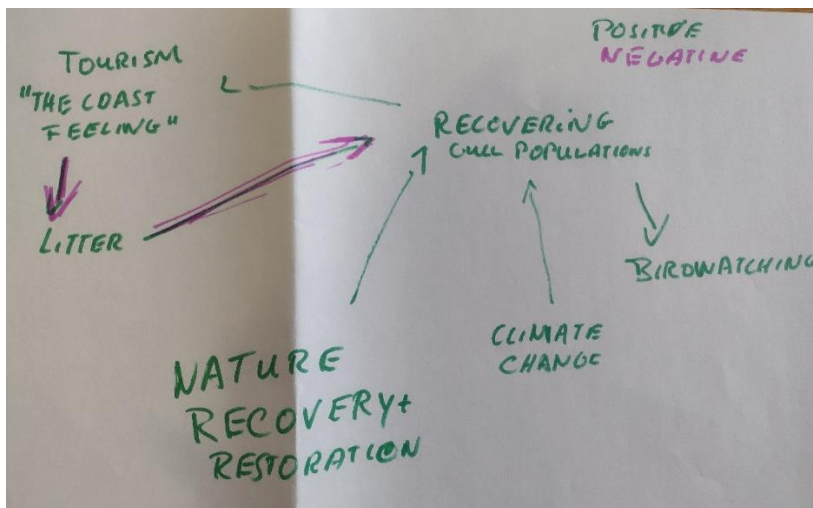 POSITIVE
NEGATIVE
TOURISM
"THE COAST
FEELING"
RECOVERING
GULL POPULATIONS
LITTER
BIRDWATCHING
CLIMATE
CHANGE
NATURE
RECOVERY+
RESTORATION